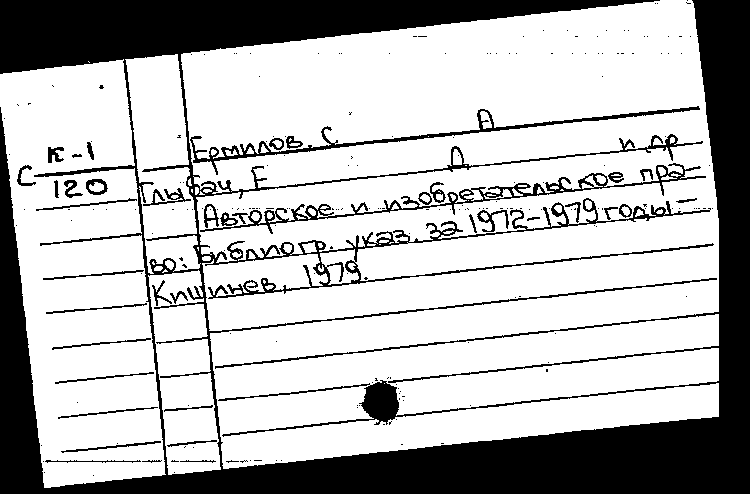 К-1
С 120
Ермилов. С А
Глыбач, Е Д и др
Авторское и изобретательское пра-
во: Библиогр. указ. за 1972-1979 годы.-
Кишинев, 1979.